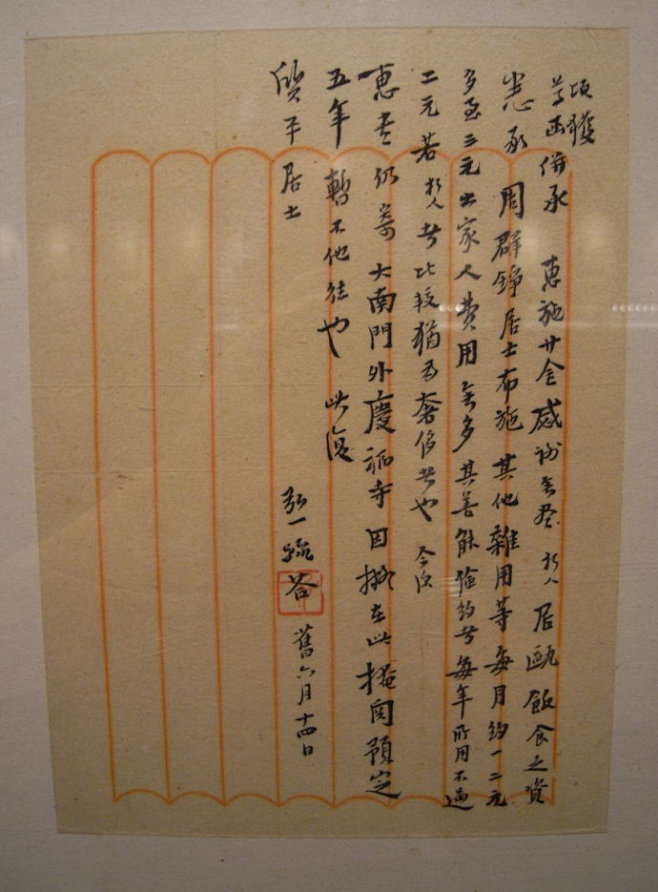 頃獲
尊函併承　惠施廿金感謝無盡朽人居甌飲食之資
悉承　周群錚居士布施其他雜用等每月約一二元
多至三元出家人費用無多其善能儉約者每年所用不過
二元若朽人者比較猶為奢侈者也　今後
惠書仍寄大南門外慶福寺因擬在此掩關預定
五年暫不他往也　此復
質平居士
弘一疏答　舊六月十四日